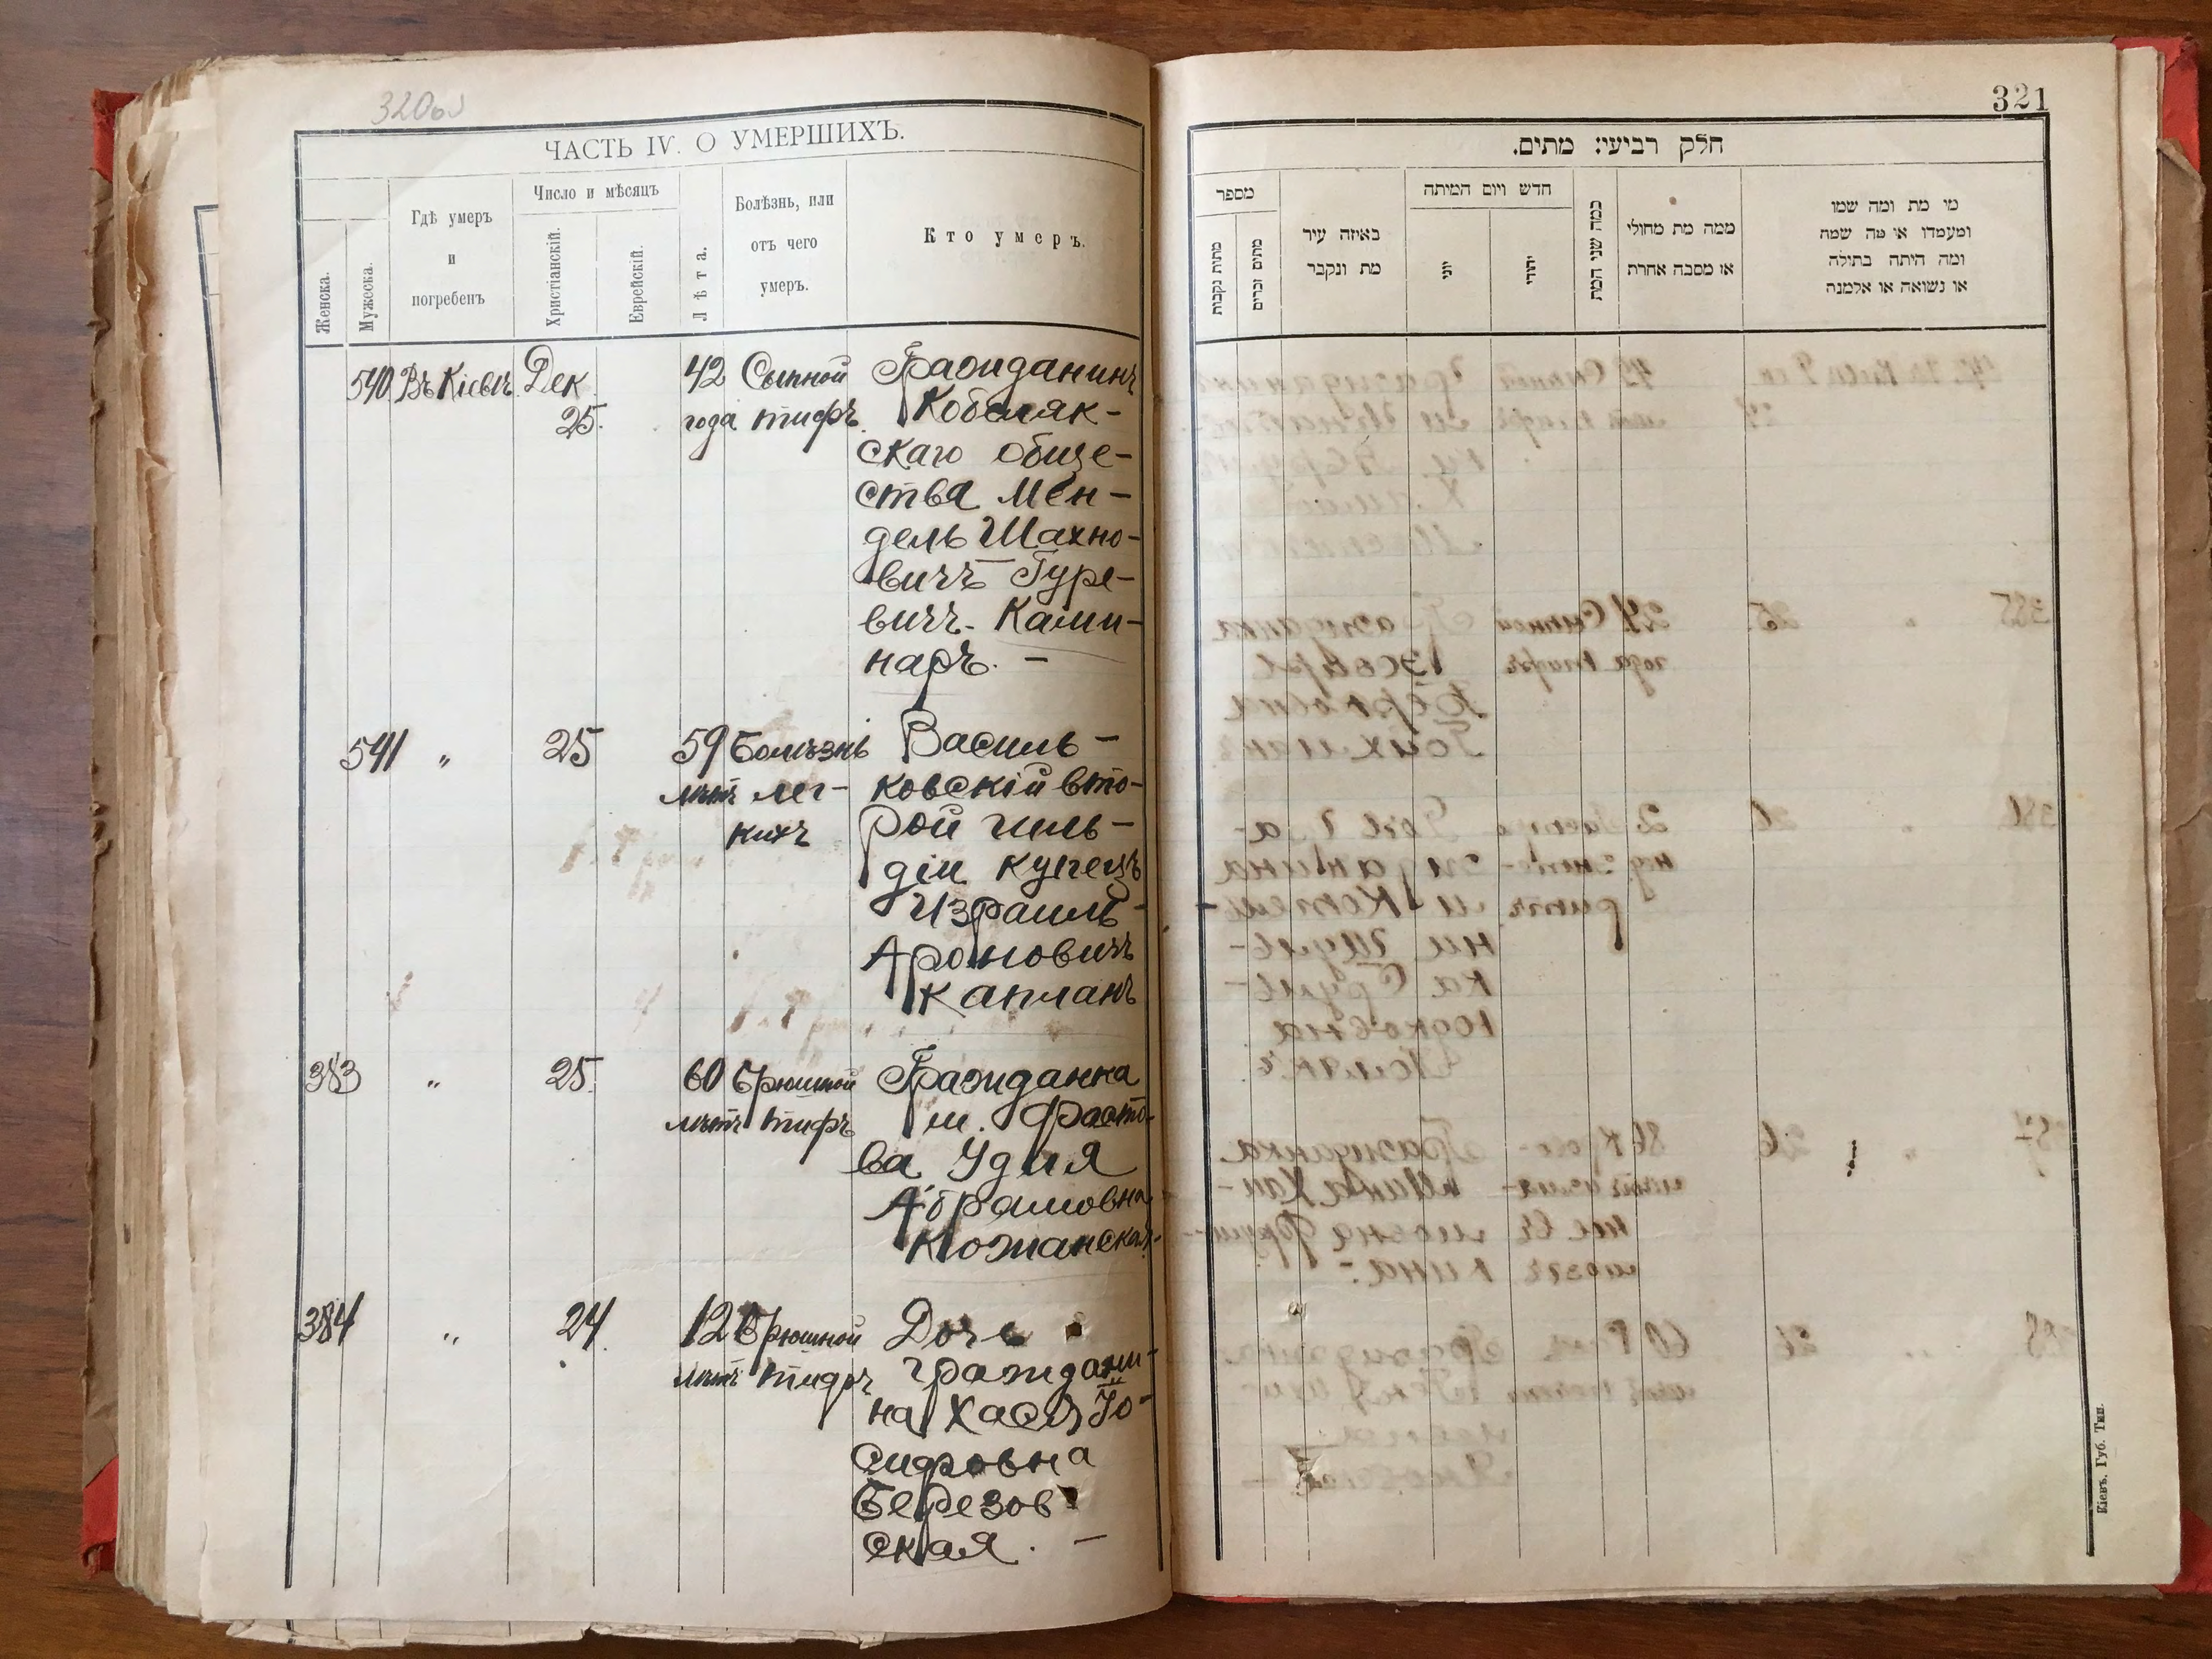 320об
ЧАСТЬ IV. О УМЕРШИХЪ.
Женска.
Мужеска.
Гдѣ умеръ
и
погребенъ
Число и мѣсяцъ
Христіанскій.
Еврейскій.
Лѣта.
Болѣзнь, или
отъ чего
умеръ.
Кто умеръ.
540 Въ Кіевѣ Дек 42 Сыпной Гражданинъ
25. года тифъ Кобеляк-
скаго обще-
ства Мен-
дель Шахно-
вичъ Гуре-
вичъ-Ками-
наръ. –
541 " 25 59 Болѣзнь Василь-
лѣтъ лег- ковскій вто-
кихъ рой гиль-
діи купецъ
Израиль
Ароновичъ
Капланъ
383 " 25. 60 Брюшной Гражданка
лѣтъ тифъ м. Фасто-
ва Удля
Абрамовна
Кожанская.
384 " 24. 12 Брюшной Дочь
лѣтъ тифъ граждани-
на Хася Іо-
сифовна
Березов
ская. –
321
חלק רביעי: מתים.
מספר
מתות נקבות
מתים זכרים
באיזה עיר
מת ונקבר
חדש ויום המיתה
יוני
יהודי
כמה שני המת
ממה מת מחולי
או מסבה אחרת
מי מת ומה שמו
ומעמדו או מה שמה
ומה היתה בתולה
או נשואה או אלמנה
Кіевъ, Губ. Тип.